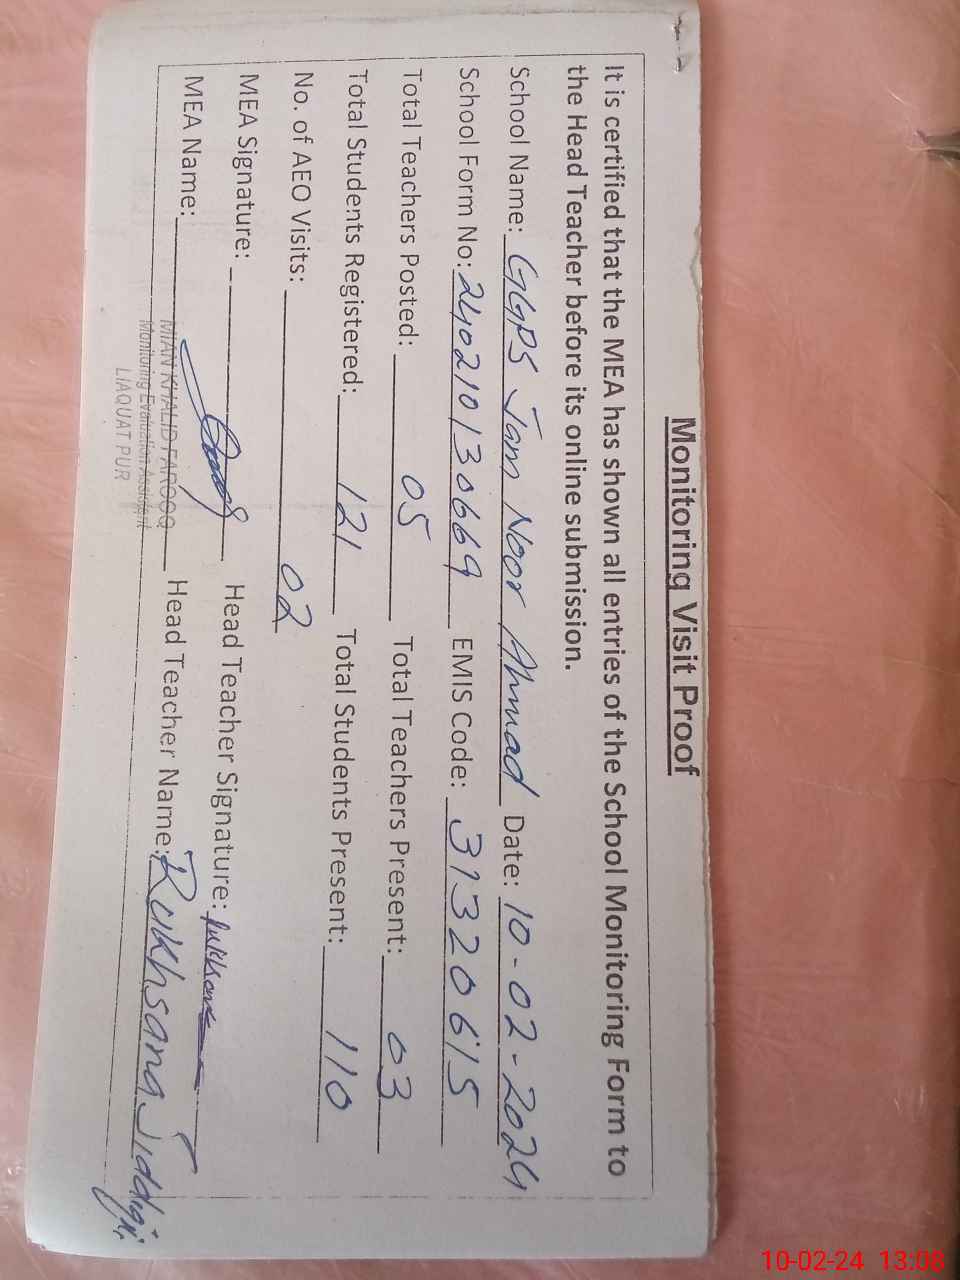 Monitoring Visit Proof
It is certified that the MEA has shown all entries of the School Monitoring Form to
the Head Teacher before its online submission.
School Name: GGPS Jam Noor Ahmad Date: 10-02-2024
School Form No: 240210130669 EMIS Code: 31320615
Total Teachers Posted: 05 Total Teachers Present: 03
Total Students Registered: 121 Total Students Present: 110
No. of AEO Visits: 02
MEA Signature: Head Teacher Signature:
MEA Name: MIAN KHALID FAROOQ Head Teacher Name: Rukhsana Siddiqi
Monitoring Evaluation Assistant
LIAQUAT PUR
10-02-24 13:08